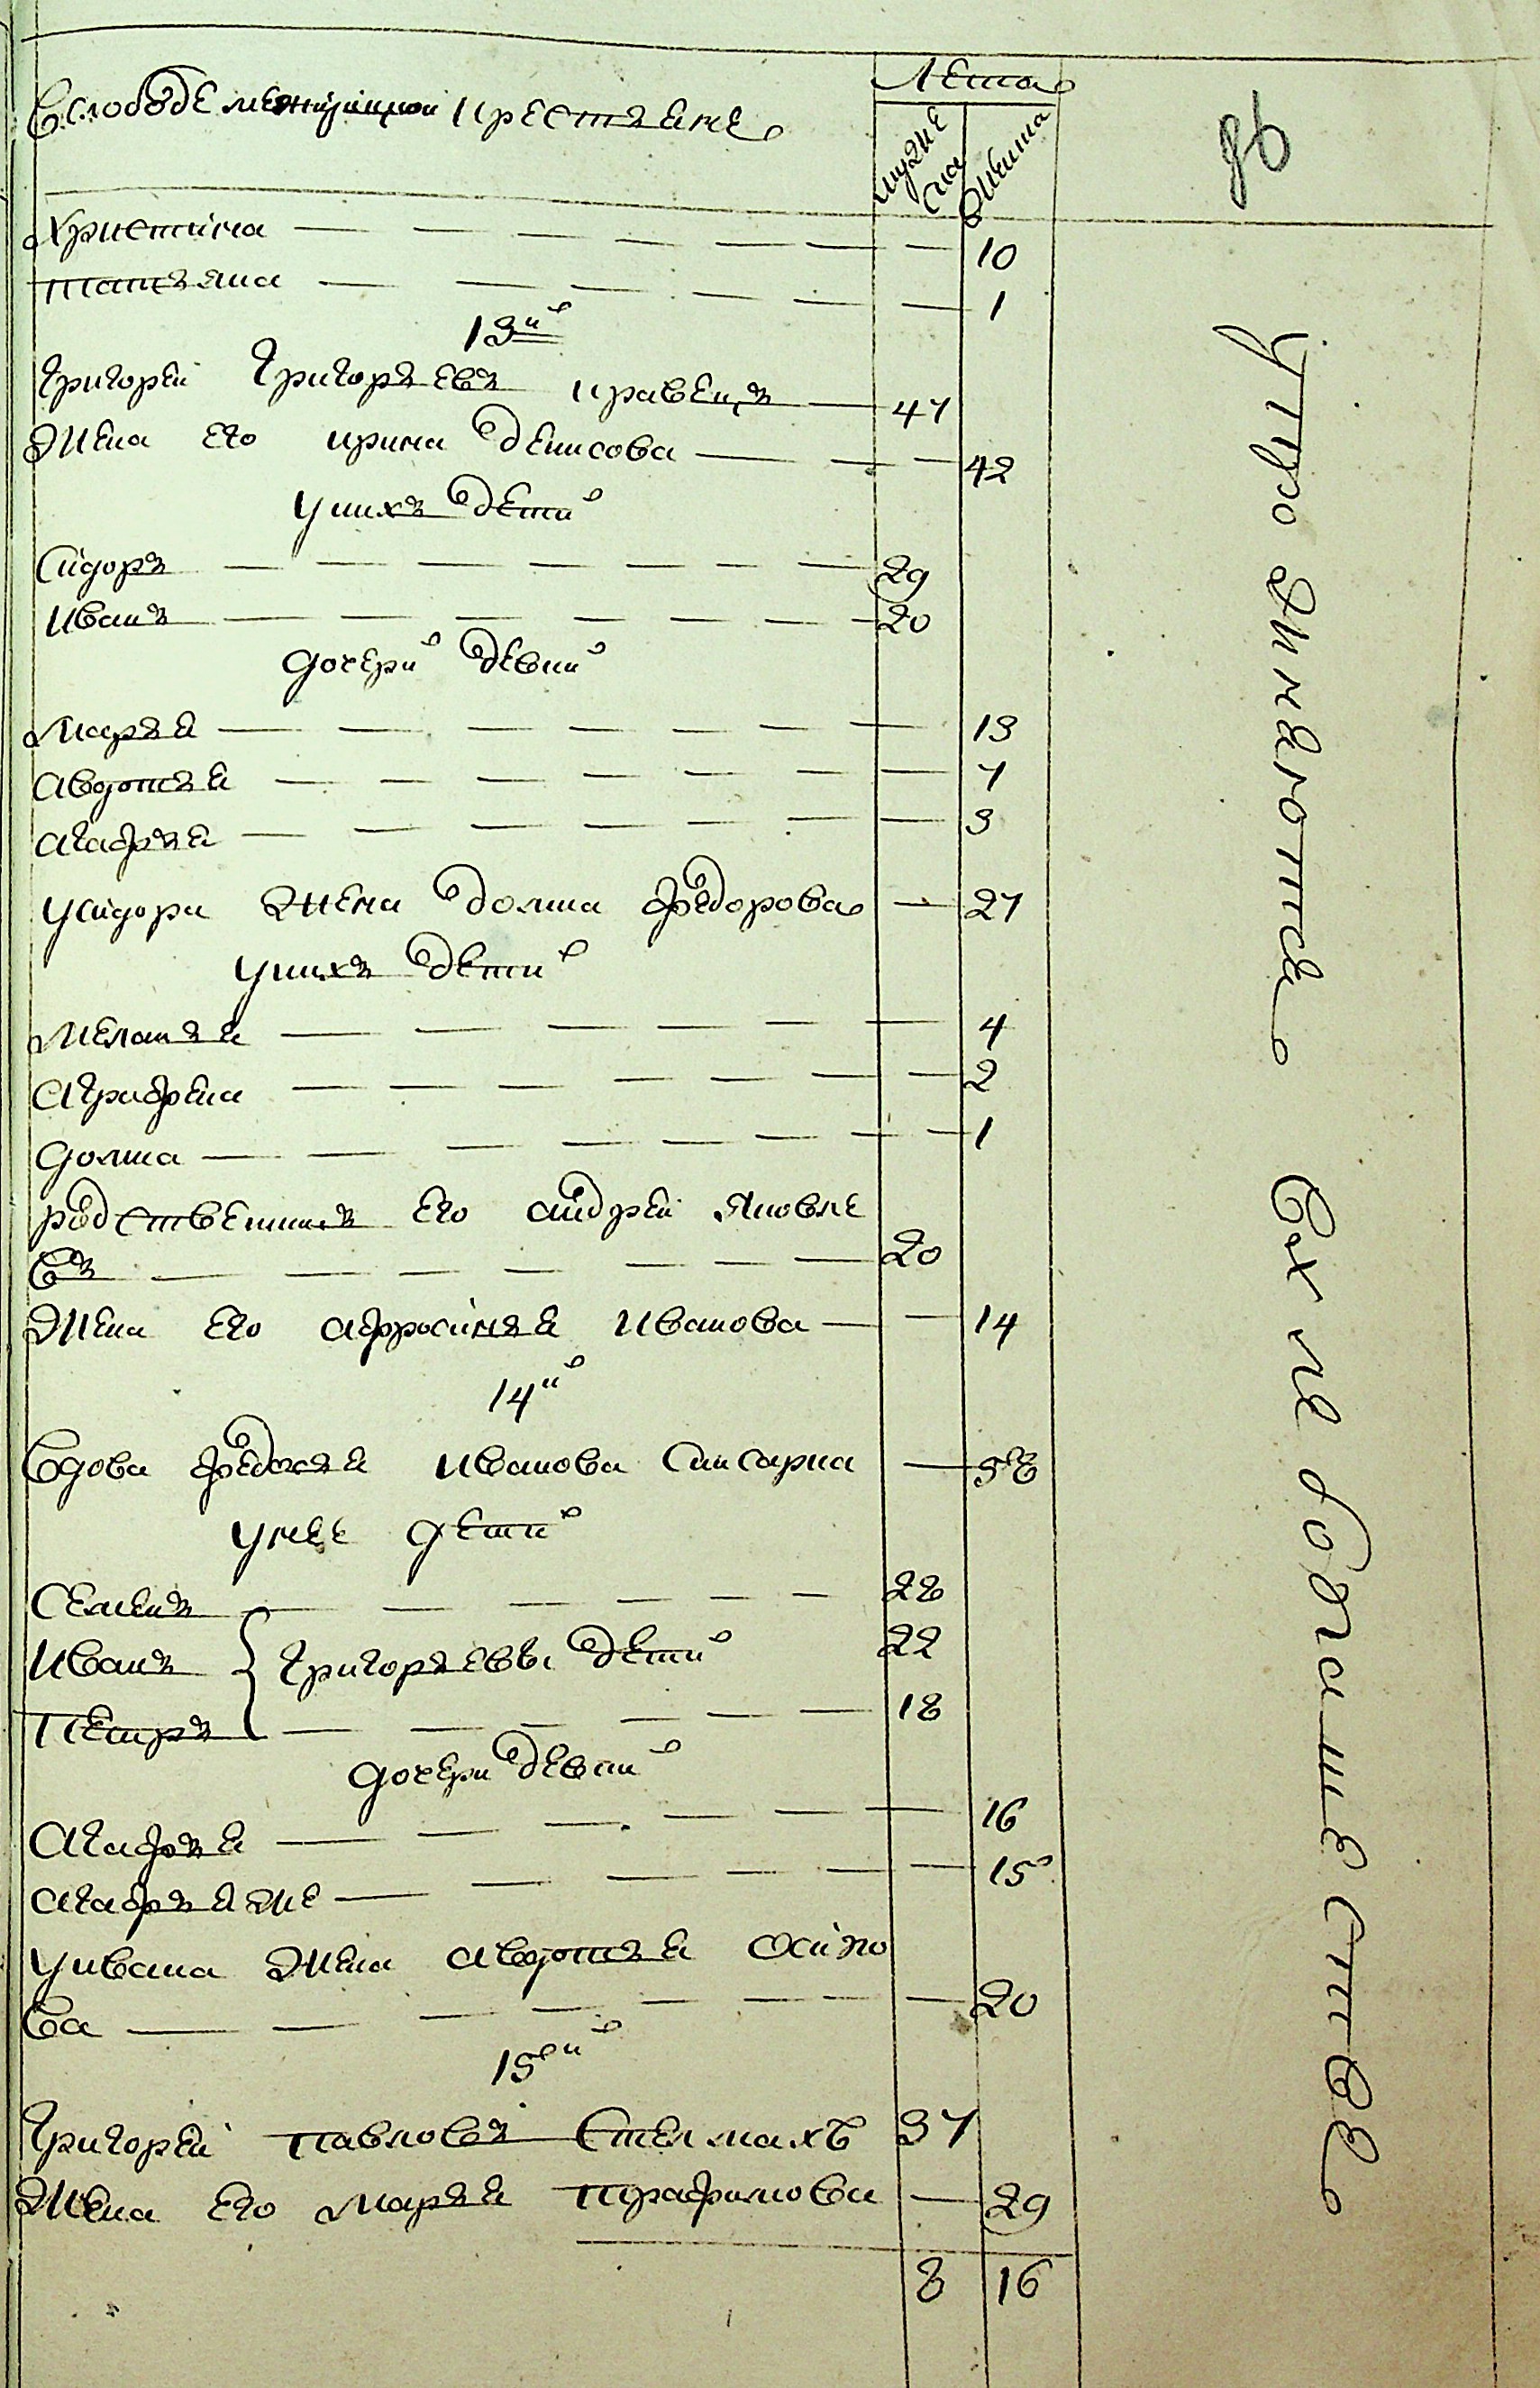 Лета
Вслободе межирицкой крестяне
мужеска
женска
Христина 10
татъяна 1
13й
Григорей Григоръевъ кравецъ 47
Жена его ирина Денисова 42
унихъ дети
Сидоръ 29
Иванъ 20
дочери девки
Маръя 13
Авдотъя 7
Агафъя 3
усидора жена домна федорова 27
унихъ дети
Меланъя 4
Аграфена 2
домна 1
родственникъ его андрей яковле
въ 20
Жена его афросинъя иванова 14
14й
Вдова федосъя иванова Снисарка 58
унее дети
Семенъ 28
Иванъ Григоръевы дети 22
Петръ 18
дочери девки
Агафъя 16
агафъя же 15
уивана жена авдотъя осипо
ва 20
15й
Григорей павловъ Стелмахъ 37
Жена его маръя трафимова 29
8 16